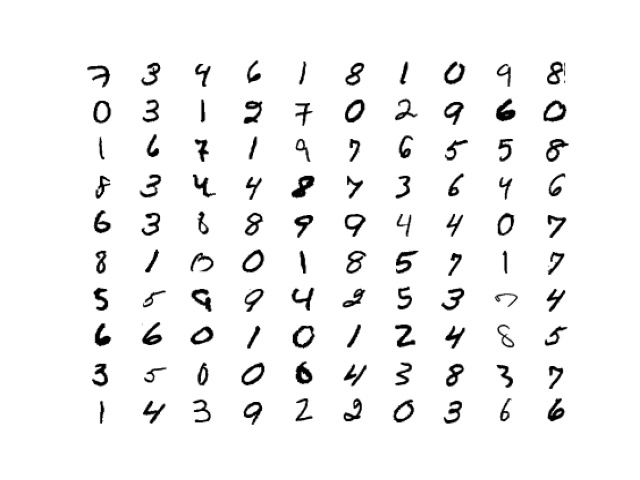 7 3 4 6 1 8 1 0 9 8
0 3 1 2 7 0 2 9 6 0
1 6 7 1 9 7 6 5 5 8
8 3 4 4 8 7 3 6 4 6
6 3 8 8 9 9 4 4 0 7
8 1 0 0 1 8 5 7 1 7
5 5 9 9 4 2 5 3 7 4
6 6 0 1 0 1 2 4 8 5
3 5 0 0 6 4 3 8 3 7
1 4 3 9 2 2 0 3 6 6